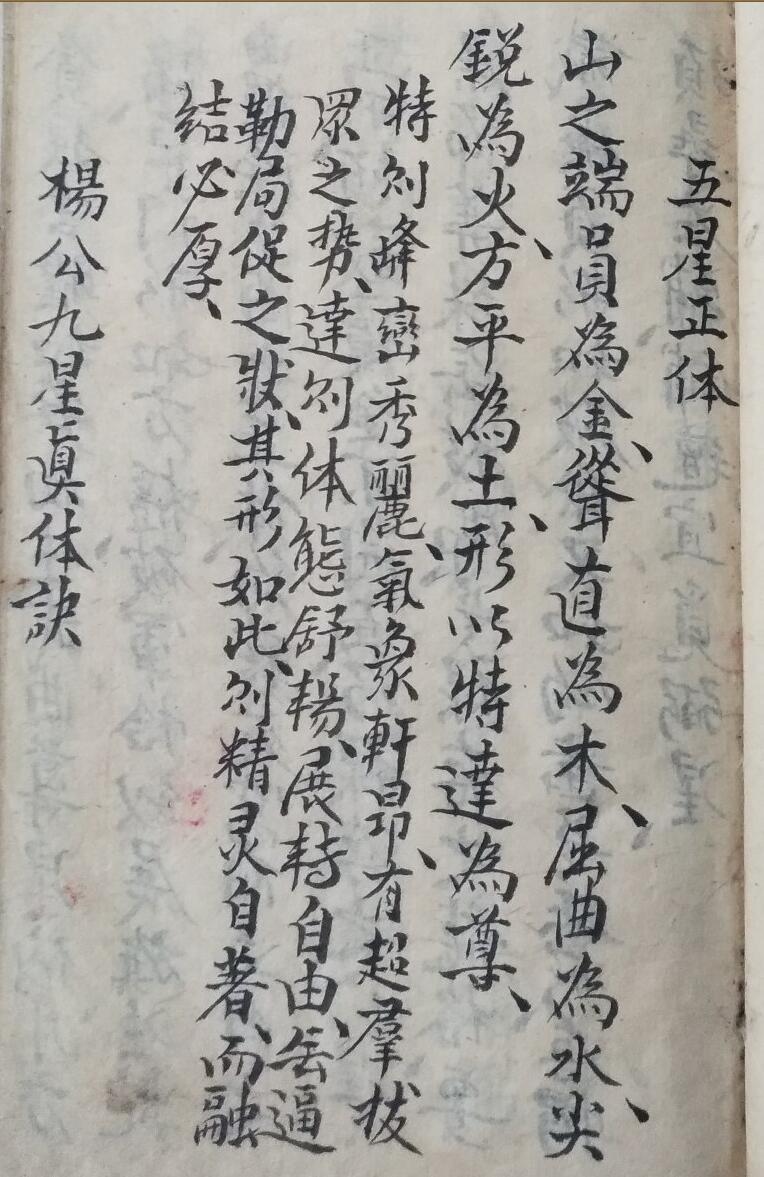 五星正体
山之端員為金、聳直為木、屈曲為水、尖
鋭為火、方平為土、形以特達為尊、
特則峰巒秀麗、氣象軒昂、有超羣拔
眾之势、達則体態舒揚、展轉自由、無逼
勒局促之狀、其形如此、則精灵自著、而融
结必厚、
楊公九星眞体訣